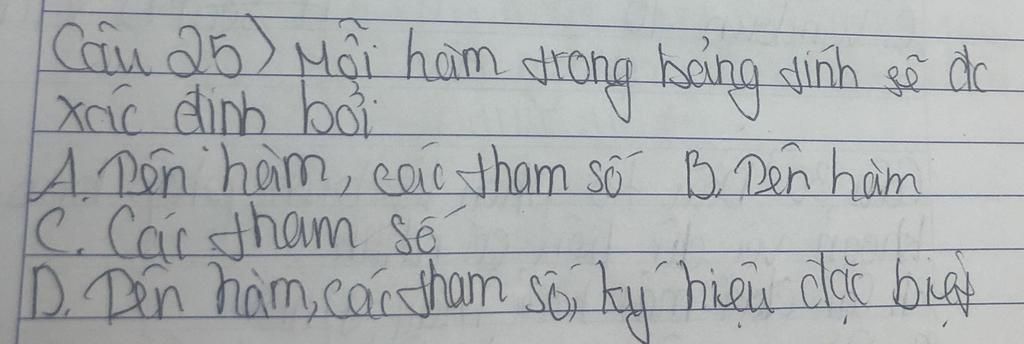 Câu 25) Mỗi hàm trong bảng tính sẽ đc
xác định bởi
A. Tên hàm, các tham số B. Tên hàm
C. Các tham số
D. Tên hàm, các tham số, ký hiệu đặc biệt